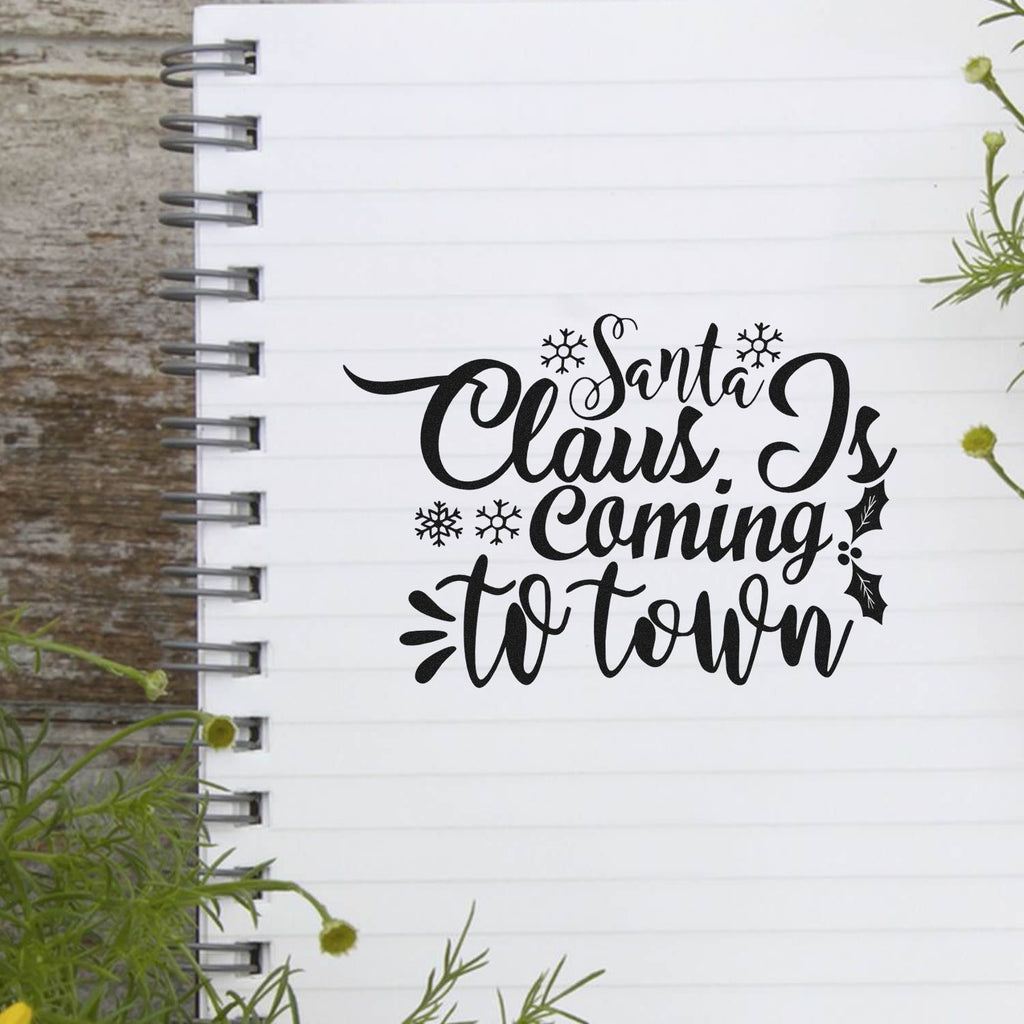 Santa
Claus Is
Coming
to town